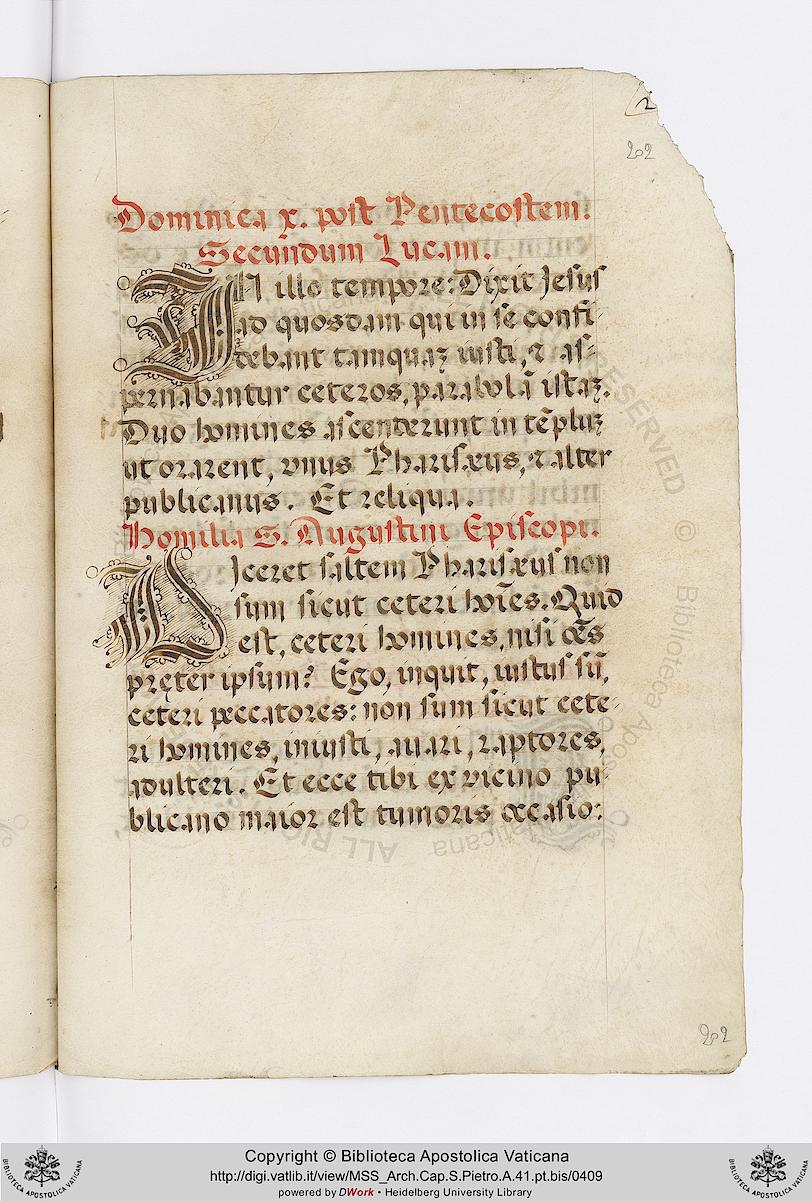 202
Dominica x. post Pentecostem.
Secundum Lucam.
IN illo tempore: Dixit Jesus
ad quosdam qui in se confi-
debant tamquaʒ iusti, ⁊ as-
pernabantur ceteros, parabolã istaʒ.
Duo homines ascenderunt in tẽpluʒ
ut orarent, vnus Pharisæus, ⁊ alter
publicanus. Et reliqua.
Homilia S. Augustini Episcopi.
Diceret saltem Pharisæus non
sum sicut ceteri hoĩes. Quid
est, ceteri homines, nisi oẽs
pręter ipsum? Ego, inquit, iustus sũ,
ceteri peccatores: non sum sicut cete-
ri homines, iniusti, auari, raptores,
adulteri. Et ecce tibi ex vicino pu-
blicano maior est tumoris occasio:
202
ALL RIGHTS RESERVED © Biblioteca Apostolica Vaticana
Copyright © Biblioteca Apostolica Vaticana
http://digi.vatlib.it/view/MSS_Arch.Cap.S.Pietro.A.41.pt.bis/0409
powered by DWork • Heidelberg University Library
BIBLIOTECA APOSTOLICA VATICANA
BIBLIOTECA APOSTOLICA VATICANA